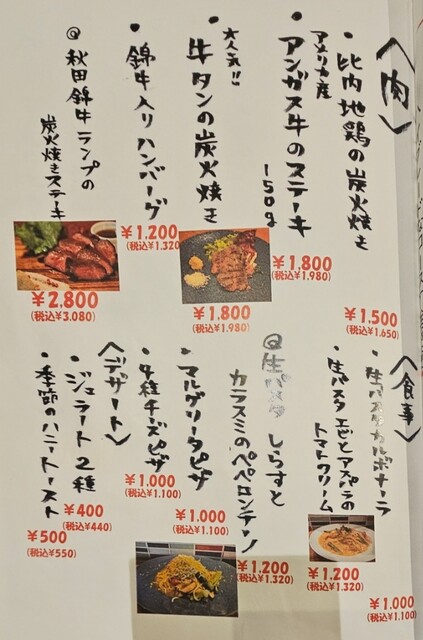 〈肉〉
・比内地鶏の炭火焼き
¥1.500
(税込¥1.650)
アメリカ産
・アンガス牛のステーキ
150g
¥1,800
(税込¥1,980)
大人気!!
・牛タンの炭火焼き
¥1.800
(税込¥1.980)
・錦牛入りハンバーグ
¥1.200
(税込¥1.320)
@秋田錦牛ランプの
炭火焼きステーキ
¥2.800
(税込¥3.080)
〈食事〉
・生パスタカルボナーラ
¥1.000
(税込¥1.100)
・生パスタ エビとアスパラの
トマトクリーム
¥1.200
(税込¥1.320)
@生パスタ しらすと
カラスミのペペロンチーノ
¥1.200
(税込¥1.320)
・マルゲリータピザ
¥1.000
(税込¥1.100)
・4種チーズピザ
¥1.000
(税込¥1.100)
〈デザート〉
・ジェラート2種
¥400
(税込¥440)
・季節のハニートースト
¥500
(税込¥550)